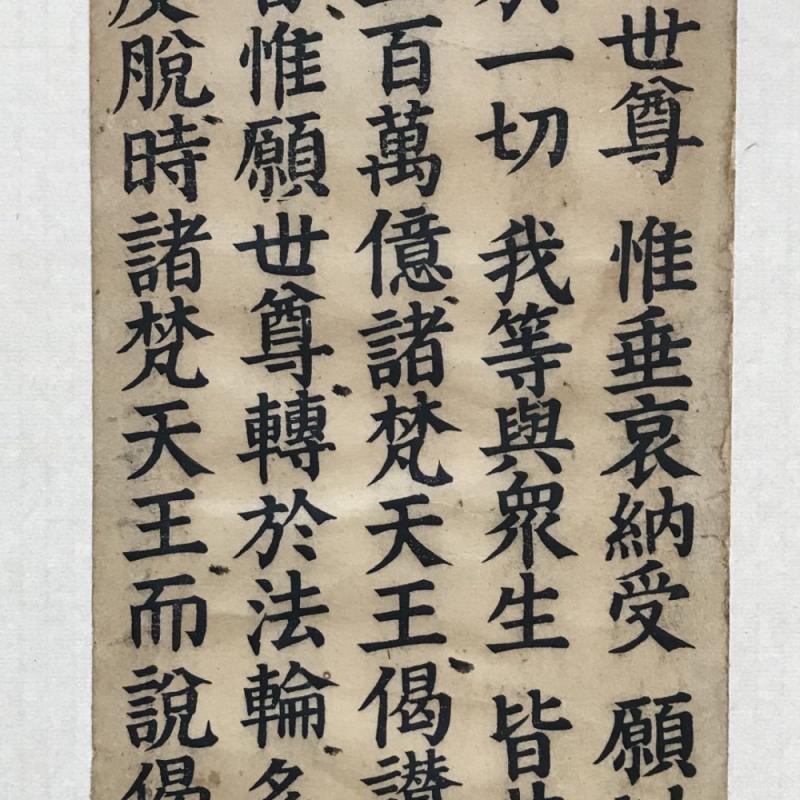 世尊 惟垂哀納受 願
一切 我等與衆生 皆
百萬億諸梵天王偈讃
惟願世尊轉於法輪多
脫時諸梵天王而說偈